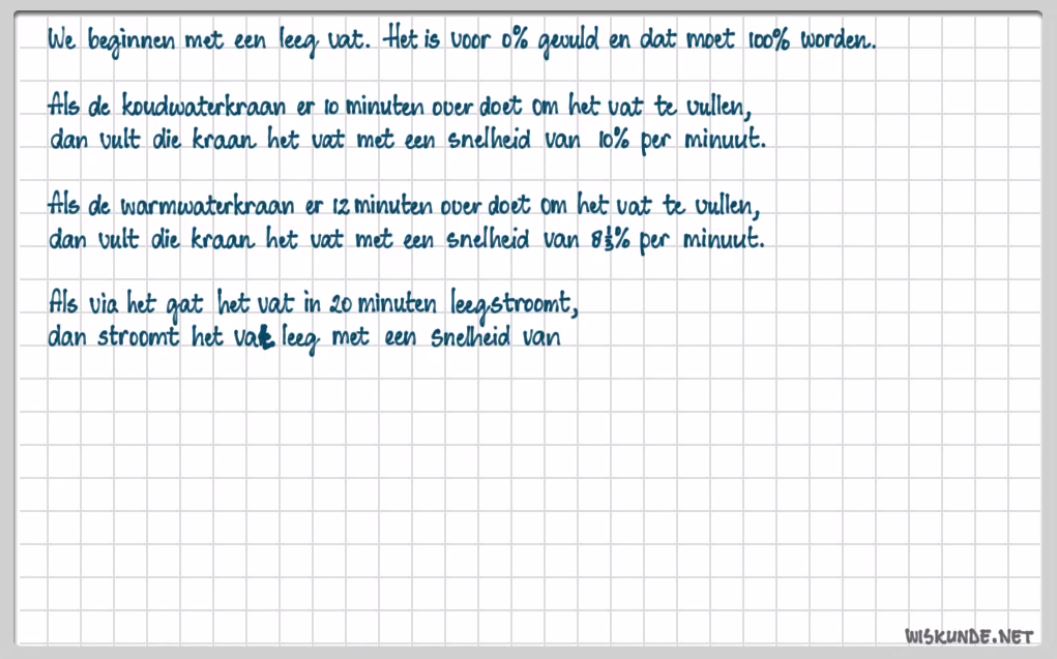 We beginnen met een leeg vat. Het is voor 0% gevuld en dat moet 100% worden.
Als de koudwaterkraan er 10 minuten over doet om het vat te vullen,
dan vult die kraan het vat met een snelheid van 10% per minuut.
Als de warmwaterkraan er 12 minuten over doet om het vat te vullen,
dan vult die kraan het vat met een snelheid van 8⅓% per minuut.
Als via het gat het vat in 20 minuten leegstroomt,
dan stroomt het vat leeg met een snelheid van
WISKUNDE.NET